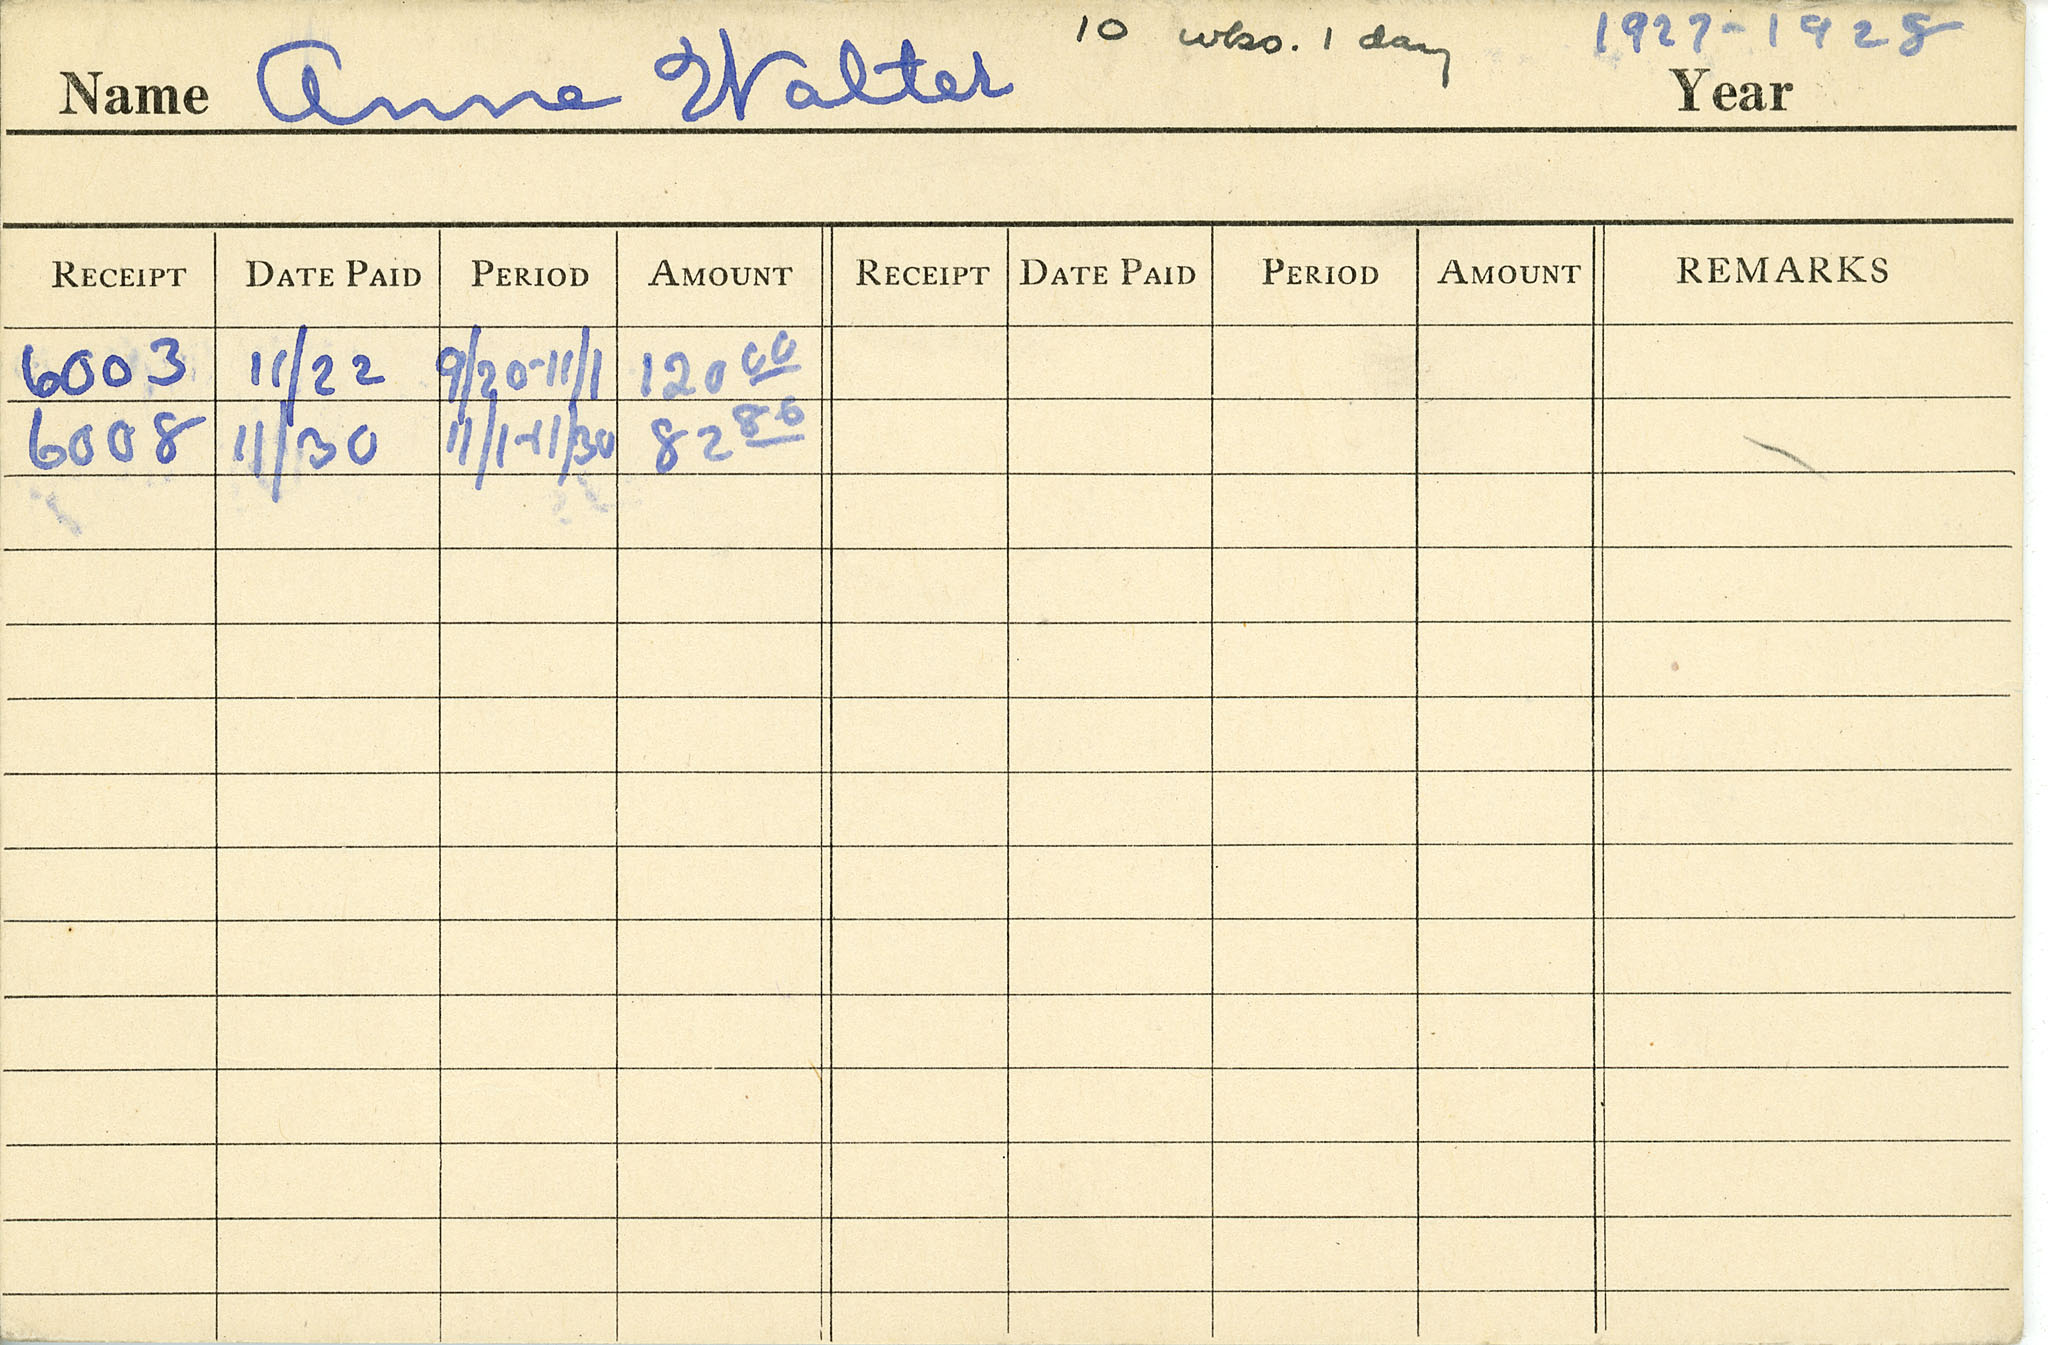 10 wks. 1 day 1927-1928
Name Anne Walter Year
RECEIPT DATE PAID PERIOD AMOUNT RECEIPT DATE PAID PERIOD AMOUNT REMARKS
6003 11/22 9/20-11/1 120 00
6008 11/30 11/1-11/30 82 80